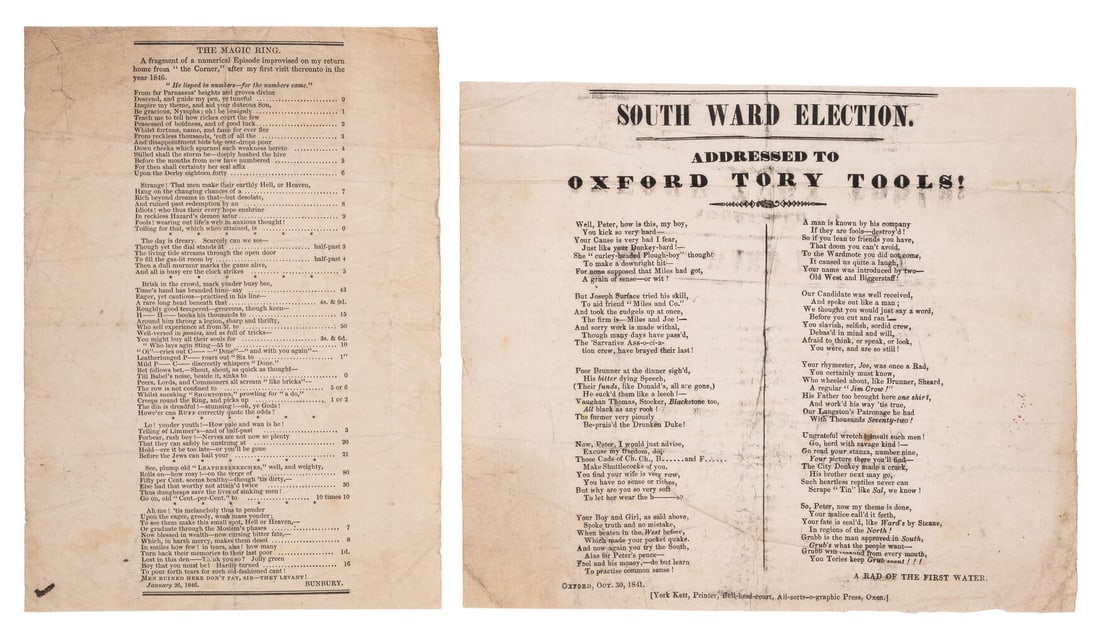 THE MAGIC RING.
A fragment of a numerical Episode improvised on my return
home from "the Corner," after my first visit thereunto in the
year 1846.
"He lisped in numbers—for the numbers came."
From far Parnassus' heights and groves divine
Descend, and guide my pen, ye tuneful ........ 9
Inspire my theme, and aid your duteous Son,
Be gracious, Nymphs; oh! be benignly ........ 1
Teach me to tell how riches court the few
Possessed of boldness, and of good luck ........ 2
Whilst fortune, name, and fame for ever flee
From reckless thousands, 'reft of all the ........ 3
And disappointment bids big tear-drops pour
Down cheeks which spurned such weakness hereto ........ 4
Stilled shall the storm be—deeply hushed the hive
Before the months from now have numbered ........ 5
For then shall certainty her seal affix
Upon the Derby eighteen forty ........ 6
Strange! That men make their earthly Hell, or Heaven,
Hang on the changing chances of a ........ 7
Rich beyond dreams in that—but desolate,
And ruined past redemption by an ........ 8
Idiots! who thus their every hope enshrine
In reckless Hazard's demon satur ........ 9
Fools! wearing out life's web in anxious thought!
Toiling for that, which when attained, is ........ 0
* * * * *
The day is dreary. Scarcely can we see—
Though yet the dial stands at ........ half-past 3
The living tide streams through the open door
To fill the gas-lit room by ........ half-past 4
Then a dull murmur marks the game alive,
And all is busy ere the clock strikes ........ 5
* * * * *
Brisk in the crowd, mark yonder busy bee,
Time's hand has branded him—say ........ 43
Eager, yet cautious—practised in his line—
A rare long head beneath that ........ 4s. & 9d.
Roughly good tempered—generous, though keen—
H—— H—— books his thousands to ........ 15
Around him throng a legion, sharp and thrifty,
Who sell experience at from M. to ........ 50
Well-versed in ponies, and so full of tricks—
You might buy all their souls for ........ 3s. & 6d.
"Who lays agin Sting—55 to ........ 10
"Oi"—cries out C—— —"Done"—"and with you again"—
Leatherlunged P— roars out "Six to ........ 1"
Mild P— C— discreetly whispers "Done."
Bet follows bet.—Shout, shout, as quick as thought—
Till Babel's noise, beside it, sinks to ........ 0
Peers, Lords, and Commoners all scream "like bricks"—
The row is not confined to ........ 5 or 6
Whilst sneaking "SHORTODDS," prowling for "a do,"
Creeps round the Ring, and picks up ........ 1 or 2
The din is dreadful!—stunning!—oh, ye Gods!
Howe'er can RUFF correctly quote the odds?
* * * * *
Lo! yonder youth!—How pale and wan is he!
Telling of Limmer's—and of half-past ........ 3
Forbear, rash boy!—Nerves are not now so plenty
That they can safely be unstrung at ........ 20
Hold—ere it be too late—or you'll be gone
Before the Jews can hail your ........ 21
* * * * *
See, plump old "LEATHERBREECHES," well, and weighty,
Rolls on—how rosy!—on the verge of ........ 80
Fifty per Cent. seems healthy—though 'tis dirty,—
Else had that worthy not attain'd twice ........ 30
Thus dungheaps save the lives of sinking men!
Go on, old "Cent.-per-Cent." to ........ 10 times 10
* * * * *
Ah me! 'tis melancholy thus to ponder
Upon the eager, greedy, weak mass yonder;
To see them make this small spot, Hell or Heaven,—
Or graduate through the Moslem's phases ........ 7
Now blessed in wealth—now cursing bitter fate,—
Which, in harsh mercy, makes them desol ........ 8
In smiles how few! in tears, alas! how many
Turn back their memories to their last poor ........ 1d.
Lost in this den—Think you so? Jolly green
Boy that you must be! Hardly turned ........ 16
To pour forth tears for such old-fashioned cant!
MEN RUINED HERE DON'T PAY, SIR—THEY LEVANT!
January 26, 1846. BUNBURY.
SOUTH WARD ELECTION.
ADDRESSED TO
OXFORD TORY TOOLS!
Well, Peter, how is this, my boy,
You kick so very hard—
Your Cause is very bad I fear,
Just like your Donkey-bard!—
She "curley-headed Plough-boy" thought
To make a downright hit—
For none supposed that Miles had got,
A grain of sense—or wit!
But Joseph Surface tried his skill,
To aid friend "Miles and Co."
And took the cudgels up at once,
The firm is—Miles and Joe!—
And sorry work is made withal,
Though many days have pass'd,
The 'Sarvative Ass-o-ci-a-
tion crew, have brayed their last!
Poor Brunner at the dinner sigh'd,
His bitter dying Speech,
(Their funds, like Donald's, all are gone,)
He suck'd them like a leech!—
Vaughan Thomas, Stocker, Blackstone too,
All black as any rook!
The former very piously
Be-prais'd the Drunken Duke!
Now, Peter, I would just advise,
Excuse my freedom, do;
Those Cads of Ch. Ch., B...... and F......
Make Shuttlecocks of you.
You find your wife is very rose,
You have no sense or riches,
But why are you so very soft
To let her wear the b———s?
Your Boy and Girl, as said above,
Spoke truth and no mistake,
When beaten in the West before,
Which made your pocket quake.
And now again you try the South,
Alas for Peter's peace—
Fool and his money,—do but learn
To practise common sense!
OXFORD, OCT. 30, 1841.
A man is known by his company
If they are fools—destroy'd!
So if you lean to friends you have,
That doom you can't avoid,
To the Wardmote you did not come,
It caused us quite a laugh,
Your name was introduced by two—
Old West and Biggerstaff!
Our Candidate was well received,
And spoke out like a man;
We thought you would just say a word,
Before you cut and ran!—
You slavish, selfish, sordid crew,
Debas'd in mind and will,
Afraid to think, or speak, or look,
You were, and are so still!
Your rhymester, Joe, was once a Rad,
You certainly must know,
Who wheeled about, like Brunner, Sheard,
A regular "Jim Crow!"
His Father too brought here one shirt,
And work'd his way 'tis true,
Our Langston's Patronage he had
With Thousands Seventy-two!
Ungrateful wretch! insult such men!
Go, herd with savage kind!—
Go read your stanza, number nine,
Your picture there you'll find—
The City Donkey made a crack,
His brother next may go,
Such heartless reptiles never can
Scrape "Tin" like Sal, we know!
So, Peter, now my theme is done,
Your malice call'd it forth,
Your fate is seal'd, like Ward's by Steane,
In regions of the North!
Grubb is the man approved in South,
Grub's what the people want—
Grubb will resound from every mouth,
You Tories keep Grub scant!!!
A RAD OF THE FIRST WATER.
[York Kett, Printer, Bell-head-court, All-sorts-o-graphic Press, Oxon.]